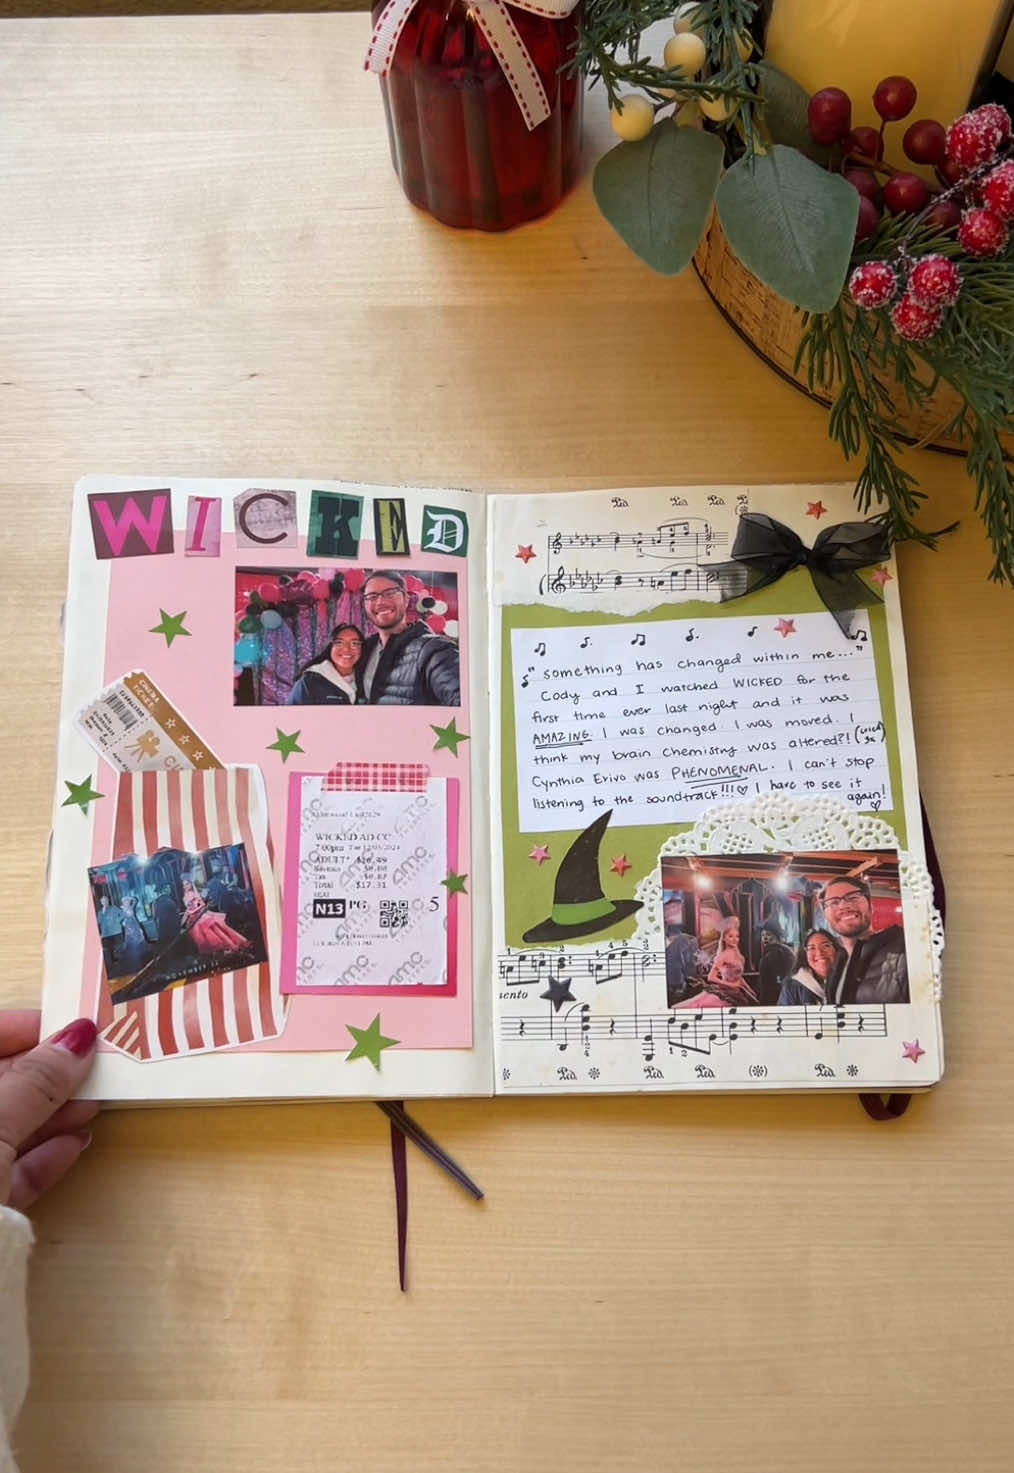 WICKED
CINEMA
TICKET
WICKED AD CC
7:00pm Tue 12/03/2024
ADULT* $16.49
$0.00
Tax $0.82
Total $17.31
SEAT
N13 PG 5
amc
NOVEMBER 22
"something has changed within me..."
Cody and I watched WICKED for the
first time ever last night and it was
AMAZING. I was changed. I was moved. I
think my brain chemistry was altered?!
Cynthia Erivo was PHENOMENAL. I can't stop
listening to the soundtrack!!! ♡ I have to see it
again!
♡
mento